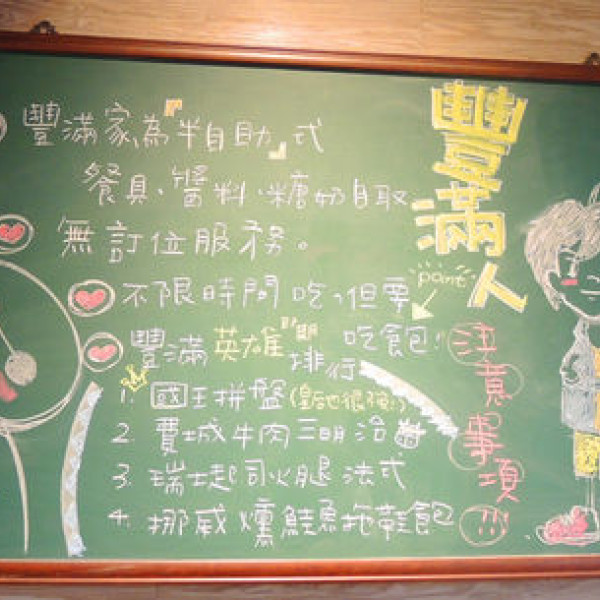 豐滿人
point
注意事項!!!
豐滿家,為『半自助』式
餐具、醬料、糖奶自取
無訂位服務。
不限時間吃,但要
吃飽!
豐滿英雄
排行
1. 國王拼盤(皇后也很強!)
2. 費城牛肉三明治
3. 瑞士起司火腿法式
4. 挪威燻鮭魚拖鞋飽